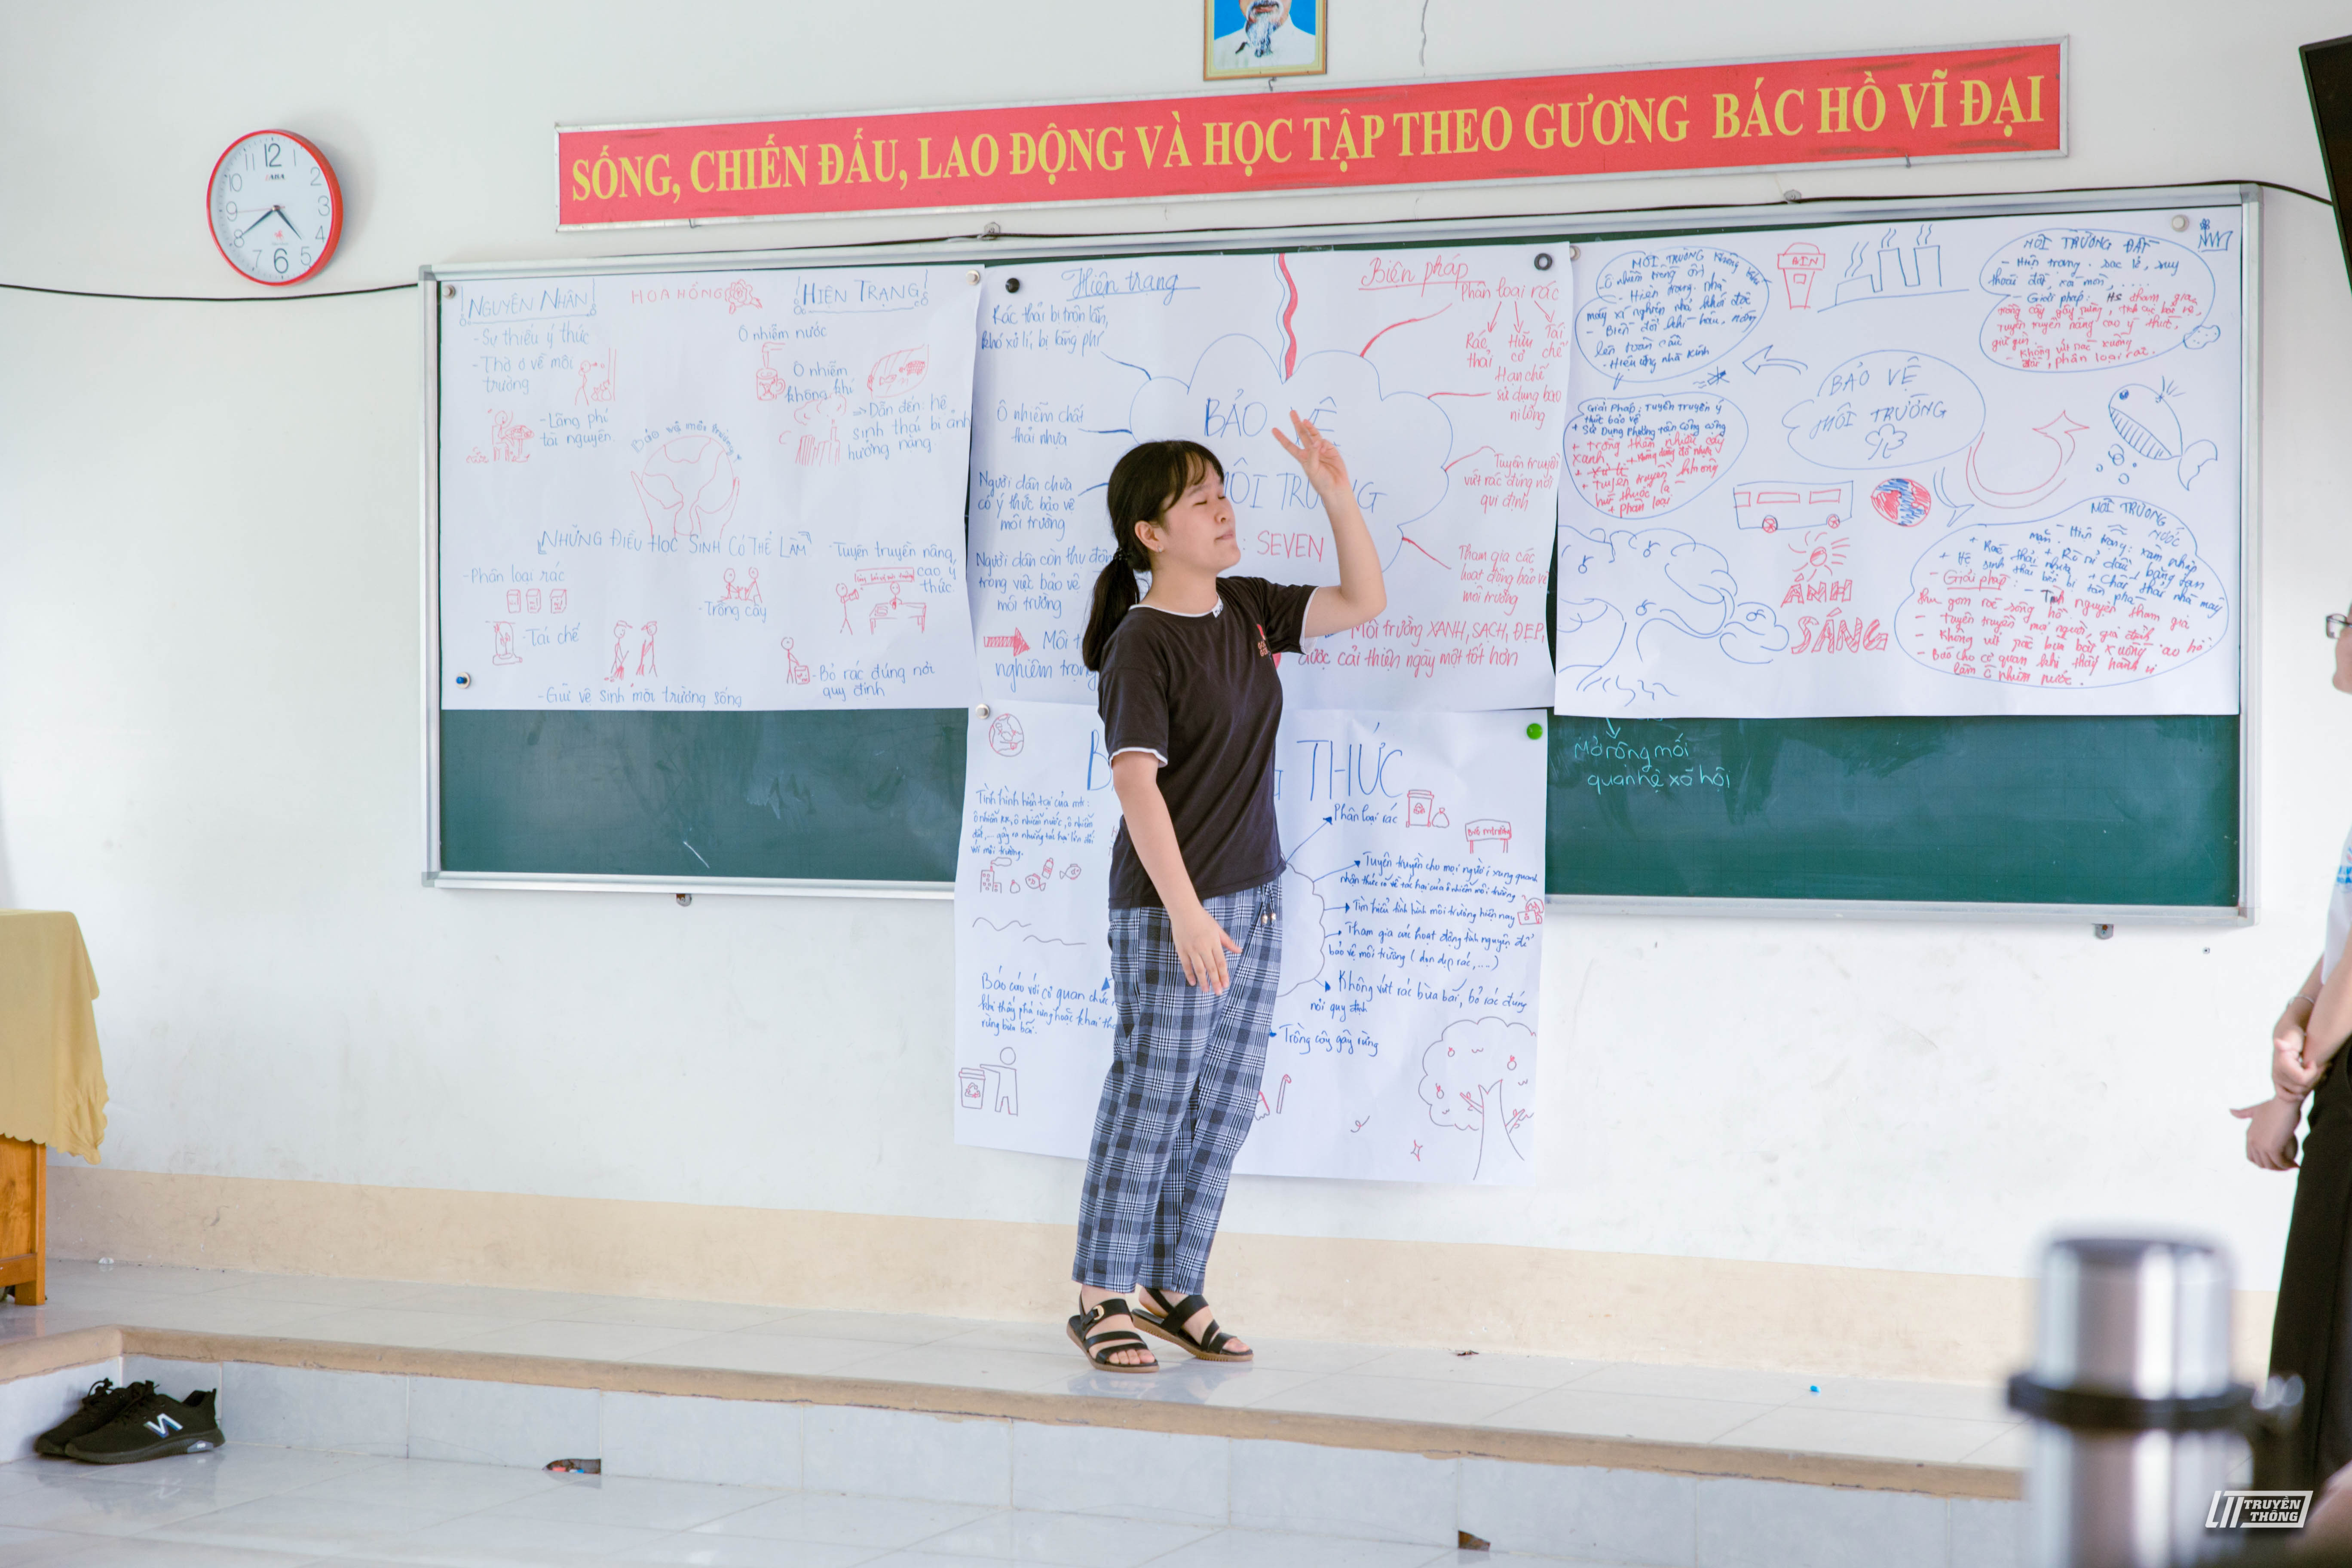 SỐNG, CHIẾN ĐẤU, LAO ĐỘNG VÀ HỌC TẬP THEO GƯƠNG BÁC HỒ VĨ ĐẠI
12
1
2
3
4
5
6
7
8
9
10
11
NGUYÊN NHÂN
- Sự thiếu ý thức
- Thờ ơ về môi
trường
- Lãng phí
tài nguyên
HOA HỒNG
HIỆN TRẠNG
Ô nhiễm nước
Ô nhiễm
không khí
=> Dẫn đến: hệ
sinh thái bị ảnh
hưởng nặng
Bảo vệ môi trường
NHỮNG ĐIỀU HỌC SINH CÓ THỂ LÀM
- Phân loại rác
- Tái chế
- Trồng cây
- Tuyên truyền nâng
cao ý
thức
- Bỏ rác đúng nơi
quy định
- Giữ vệ sinh môi trường sống
Hiện trạng
Rác thải bị trộn lẫn,
khó xử lí, bị lãng phí
Ô nhiễm chất
thải nhựa
Người dân chưa
có ý thức bảo vệ
môi trường
Người dân còn thụ độn
trong việc bảo vệ
môi trường
Môi t
nghiêm trọng
BẢO VỆ
MÔI TRƯỜNG
: SEVEN
Biện pháp
Phân loại rác
Rác
thải
Hữu
cơ
Tái
chế
Hạn chế
sử dụng bao
ni lông
Tuyên truyền
vứt rác đúng nơi
quy định
Tham gia các
hoạt động bảo vệ
môi trường
Môi trường XANH, SẠCH, ĐẸP,
được cải thiện ngày một tốt hơn
MÔI TRƯỜNG
- Hiện trạng: nhà
- Biến đổi khí hậu, nóng
lên toàn cầu
- Hiệu ứng nhà kính
Giải pháp: Tuyên truyền ý
thức bảo vệ
+ Sử dụng phương tiện công cộng
+ Trồng thêm nhiều cây
xanh
+ Tuyên truyền không
hút thuốc lá
+ phân loại
BIN
BẢO VỆ
MÔI TRƯỜNG
MÔI TRƯỜNG ĐẤT
- Hiện trạng: sạc lở, suy
thoái đất, xói mòn, ...
- Giải pháp: HS tham gia
trồng cây gây rừng,
tuyên truyền nâng cao ý thức,
giữ gìn
- Không vứt rác xuống
đất, phân loại rác.
ÁNH
SÁNG
MÔI TRƯỜNG
NƯỚC
- Giải pháp: - Tình nguyện tham gia
thu gom rác sông hồ.
- Tuyên truyền mọi người, gia đình
- Không vứt rác bừa bãi xuống ao hồ
- Báo cho cơ quan khi thấy hành vi
làm ô nhiễm nước.
Mở rộng mối
quan hệ xã hội
THỨC
Tình hình hiện tại của mt:
ô nhiễm kk, ô nhiễm nước, ô nhiễm
đất,... gây ra những tác hại lớn đối
với môi trường.
Báo cáo với cơ quan chức
khi thấy phá rừng hoặc khai th
rừng bừa bãi.
Phân loại rác
Tuyên truyền cho mọi người xung quanh
nhận thức rõ về tác hại của ô nhiễm môi trường
Tìm hiểu tình hình môi trường hiện nay
Tham gia các hoạt động tình nguyện để
bảo vệ môi trường (dọn dẹp rác,....)
Không vứt rác bừa bãi, bỏ rác đúng
nơi quy định
Trồng cây gây rừng
N
TRUYỀN
THÔNG